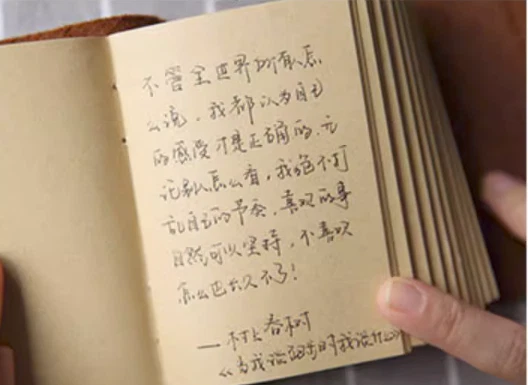 不管全世界所有人怎
么说，我都认为自己
的感受才是正确的.无
论别人怎么看，我绝不打
乱自己的节奏，喜欢的事
自然可以坚持，不喜欢
怎么也长久不了！
——村上春树
《当我谈跑步时我谈什么》